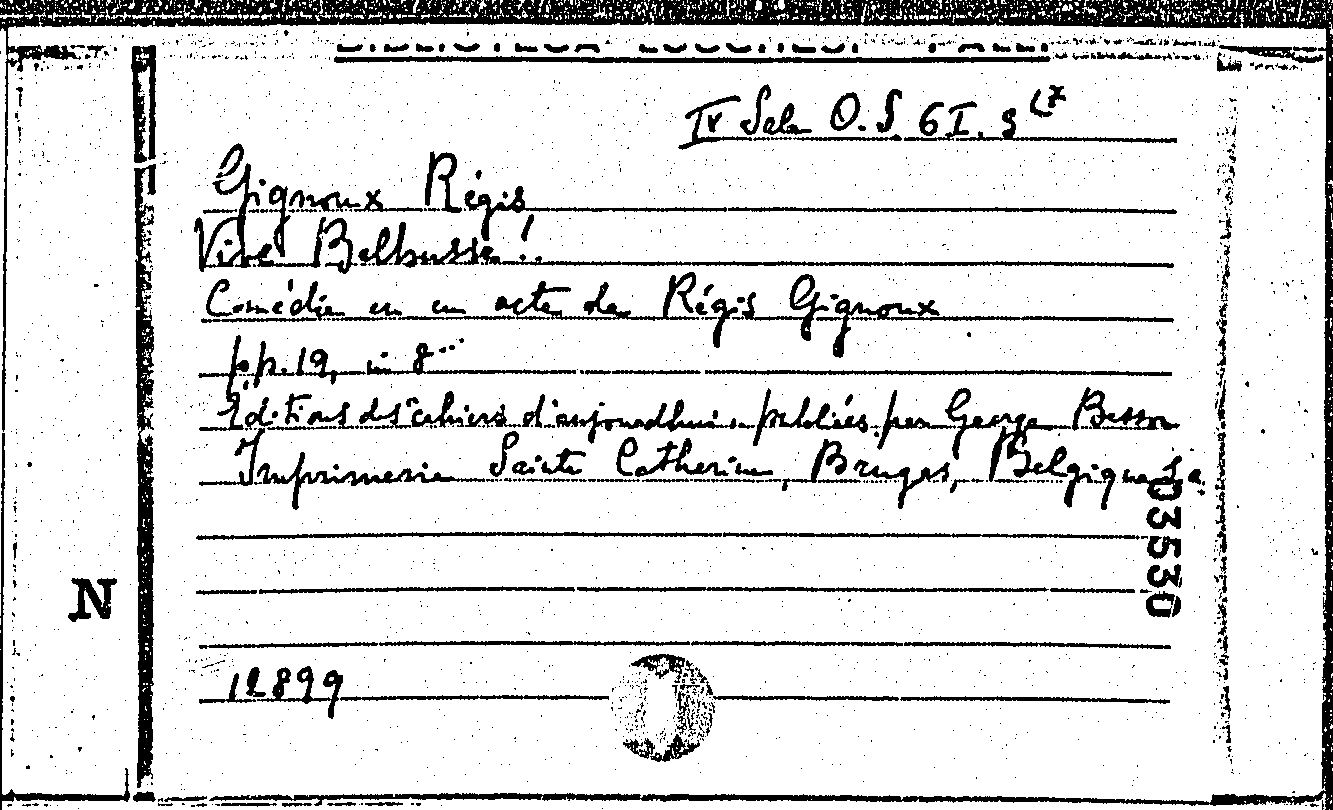 BIBLIOTECA LUCCHESI - PALLI
IV Sala O. S. 6 I. 9
Gignoux Régis
Vive Belhusse!..
Comédie en un acte de Régis Gignoux
pp. 19, in 8
Editions des "cahiers d'aujourdhui" publiées par George Besson
Imprimerie Sainte Catherine, Bruges, Belgique
03530
N
12899